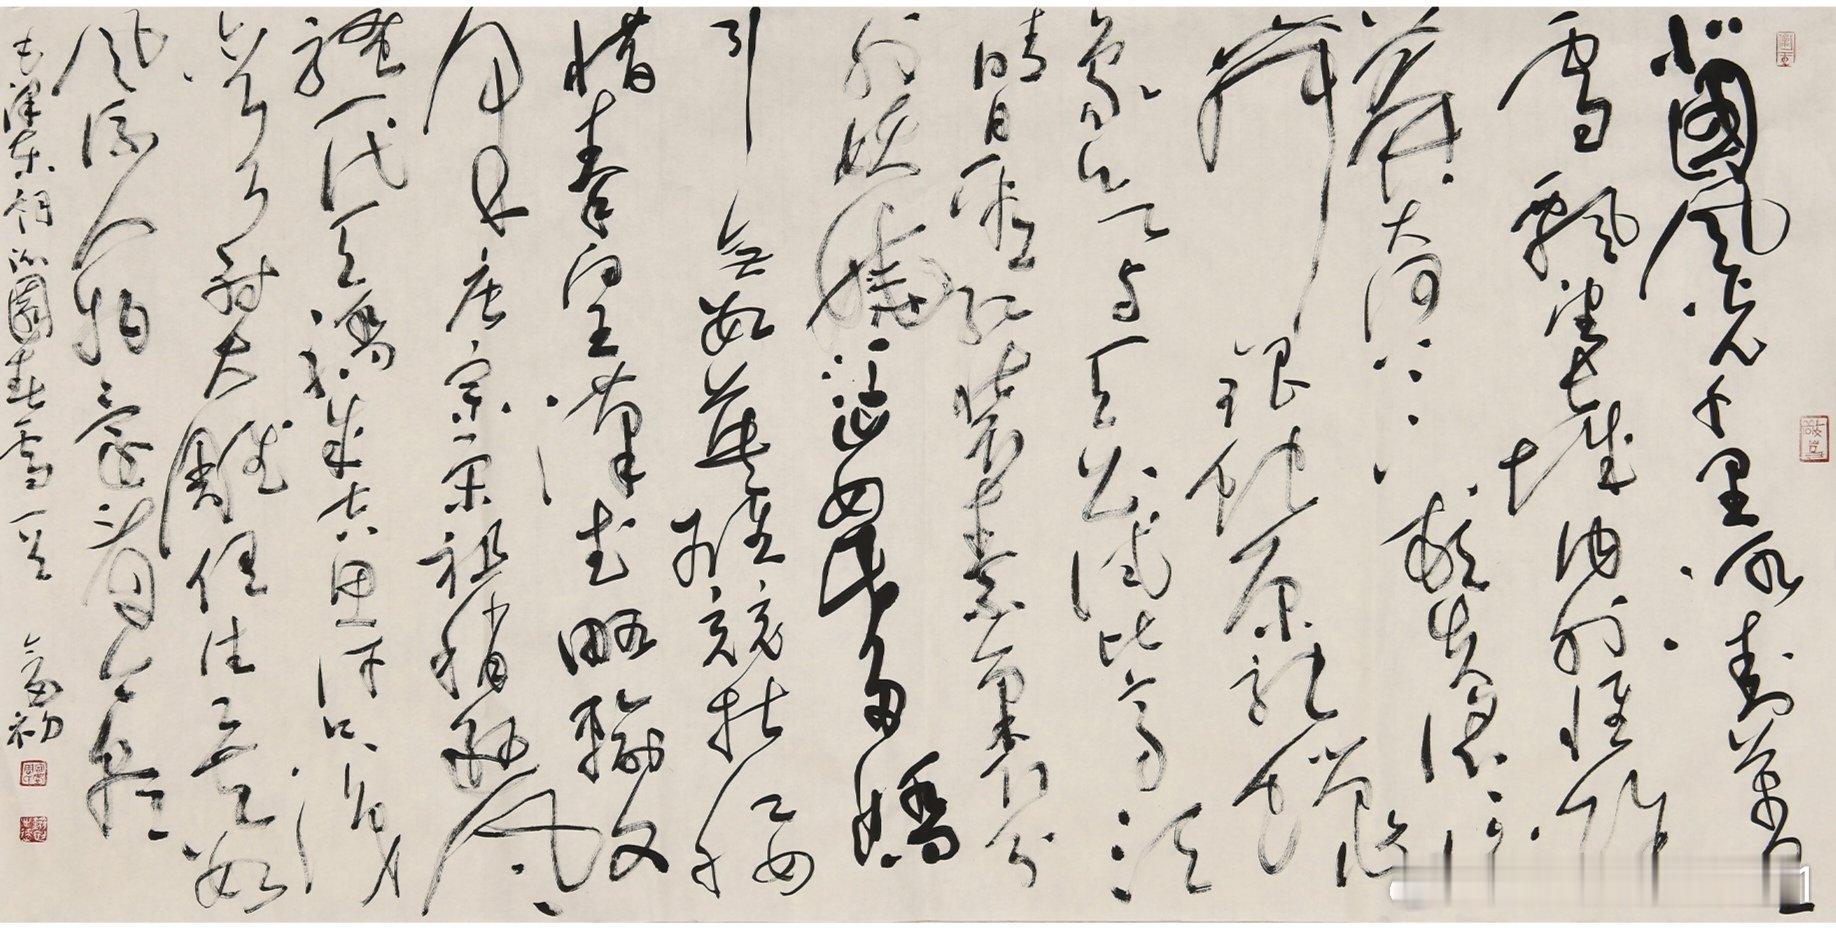 北國風光千里冰封萬里
雪飄望長城內外惟餘
莽莽大河上下頓失滔滔
山舞銀蛇原馳蠟
象欲與天公試比高須
晴日看紅裝素裹分
外妖嬈江山如此多嬌
引無數英雄競折腰
惜秦皇漢武略輸文
采唐宗宋祖稍遜風
騷一代天驕成吉思汗只識
彎弓射大雕俱往矣數
風流人物還看今朝
毛澤東詞沁園春雪一首